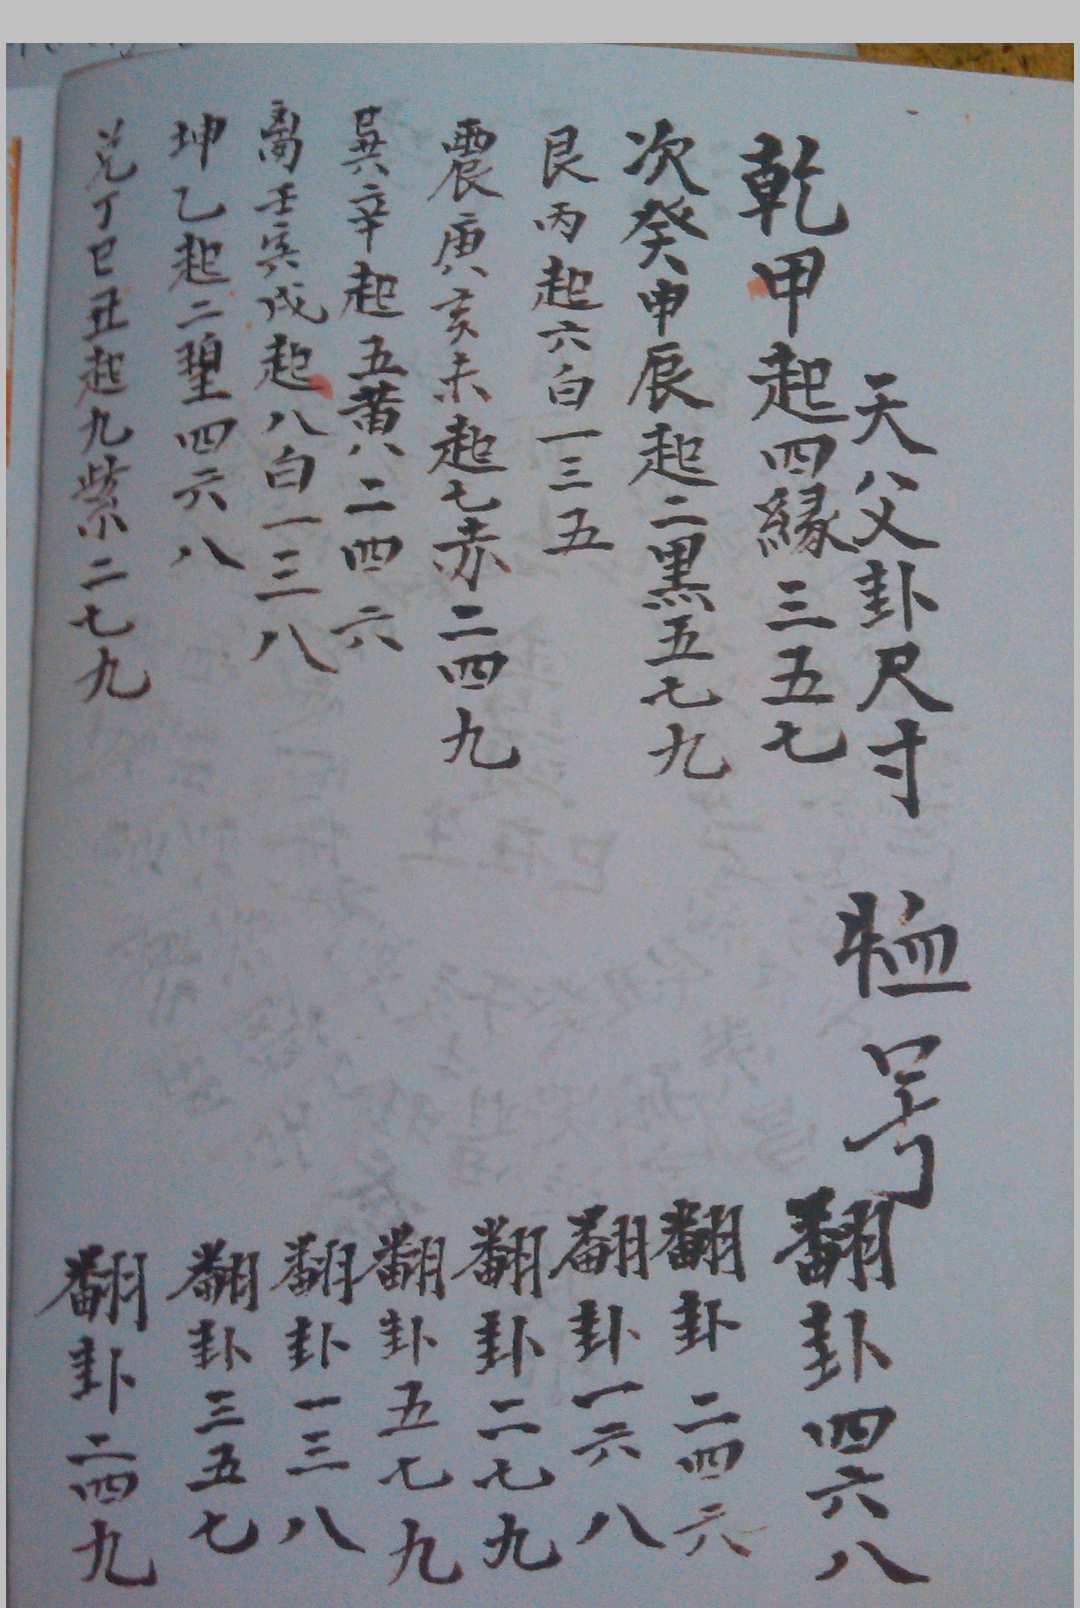 天父卦尺寸
号
乾甲起四緣三五七 翻卦四六八
次癸申辰起二黑五七九 翻卦二四六
艮丙起六白一三五 翻卦一六八
震庚亥未起七赤二四九 翻卦二七九
巽辛起五黄二四六 翻卦五七九
离壬寅戌起八白一三八 翻卦一三八
坤乙起二 四六八 翻卦三五七
兑丁巳丑起九紫二七九 翻卦二四九